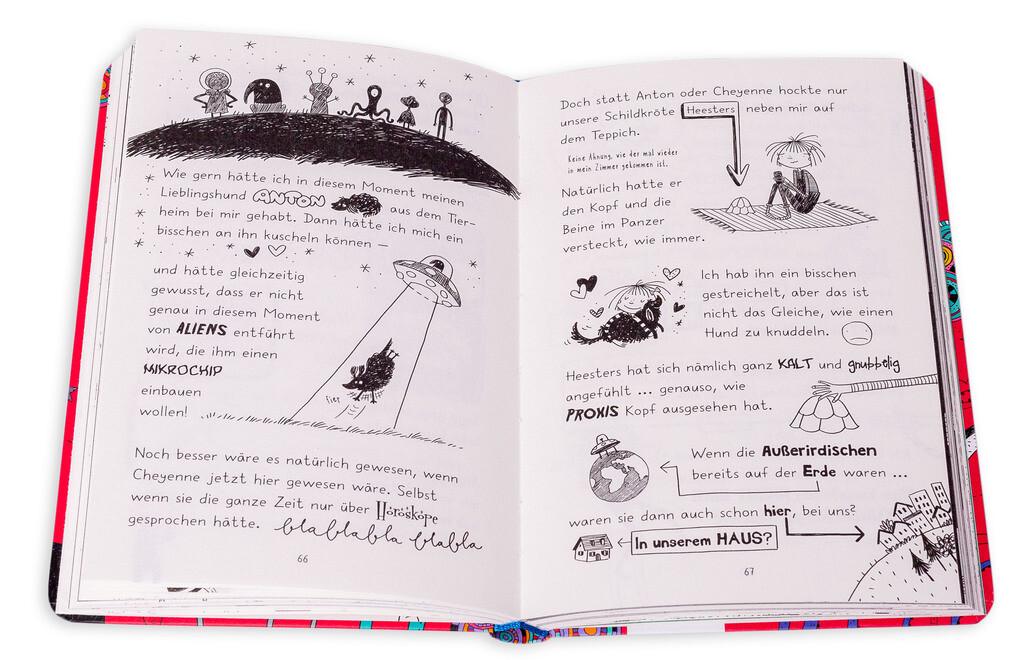 Wie gern hätte ich in diesem Moment meinen
Lieblingshund ANTON aus dem Tier-
heim bei mir gehabt. Dann hätte ich mich ein
bisschen an ihn kuscheln können –
und hätte gleichzeitig
gewusst, dass er nicht
genau in diesem Moment
von ALIENS entführt
wird, die ihm einen
MIKROCHIP
einbauen
wollen!
fiep
Noch besser wäre es natürlich gewesen, wenn
Cheyenne jetzt hier gewesen wäre. Selbst
wenn sie die ganze Zeit nur über Horoskope
gesprochen hätte. blablablabla blabla
66
Doch statt Anton oder Cheyenne hockte nur
unsere Schildkröte Heesters neben mir auf
dem Teppich.
Keine Ahnung, wie der mal wieder
in mein Zimmer gekommen ist.
Natürlich hatte er
den Kopf und die
Beine im Panzer
versteckt, wie immer.
Ich hab ihn ein bisschen
gestreichelt, aber das ist
nicht das Gleiche, wie einen
Hund zu knuddeln.
Heesters hat sich nämlich ganz KALT und gnubbelig
angefühlt ... genauso, wie
PROXIS Kopf ausgesehen hat.
Wenn die Außerirdischen
bereits auf der Erde waren ...
waren sie dann auch schon hier, bei uns?
In unserem HAUS?
67